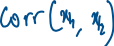 corr(x₁, x₂)